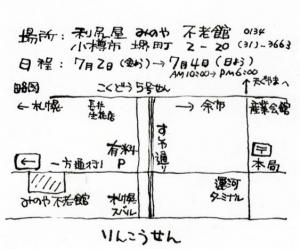 場所: 利尻屋 みのや 不老館 0134
小樽市 堺町 2-20 (31)-3663
日程: 7月2日(金)→7月4日(日)
AM10:00→PM6:00
略図
こくどう5号せん
←札幌
→余市
産業会館
有料
P
すしや通り
←
一方通行!
〒
本局
みのや不老館
札幌
スバル
運河
ターミナル
りんこうせん